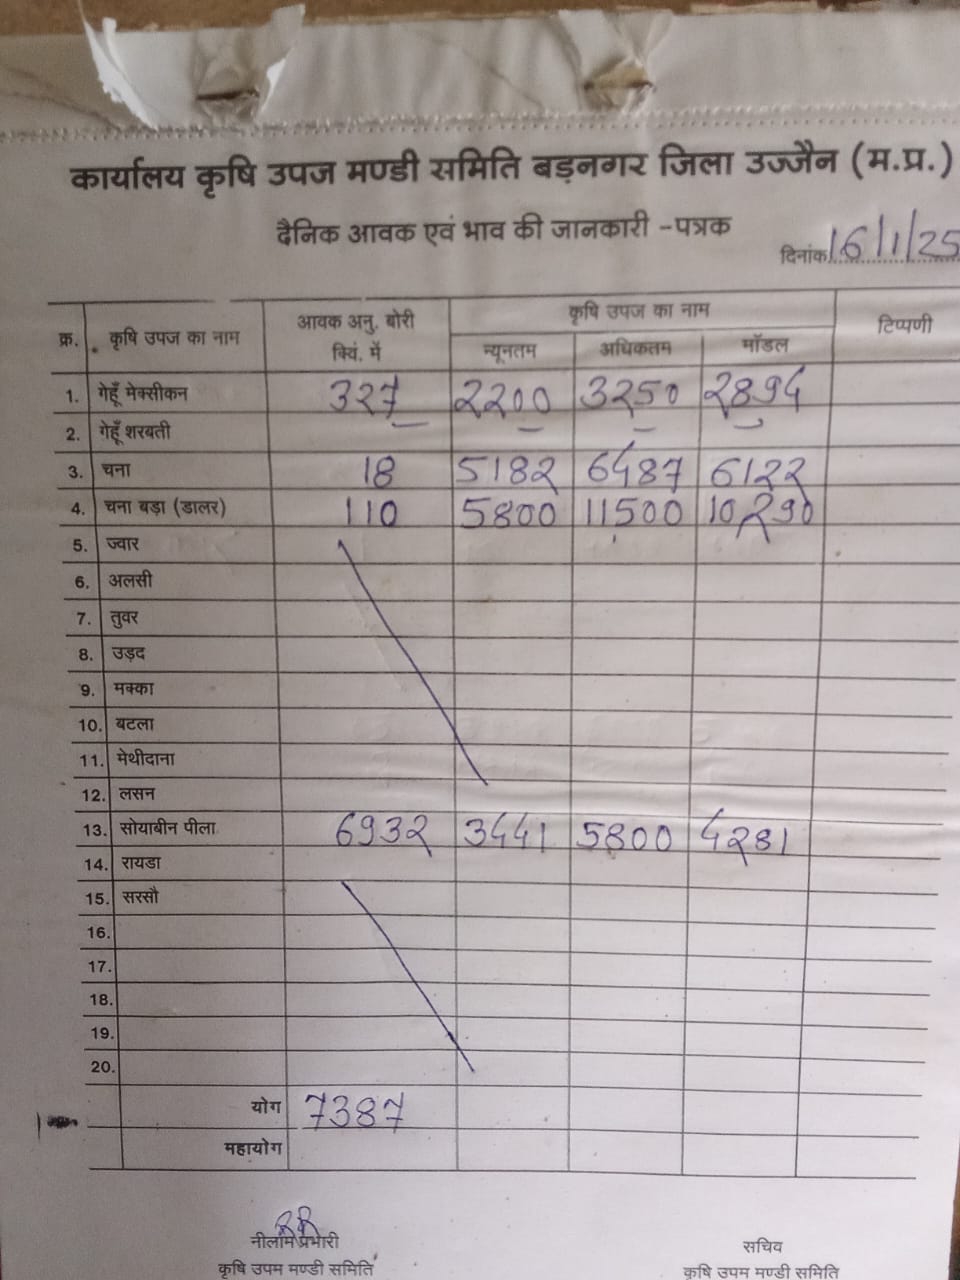 कार्यालय कृषि उपज मण्डी समिति बड़नगर जिला उज्जैन (म.प्र.)
दैनिक आवक एवं भाव की जानकारी -पत्रक
दिनांक 16/1/25
क्र. कृषि उपज का नाम आवक अनु. बोरी क्विं. में कृषि उपज का नाम टिप्पणी
न्यूनतम अधिकतम मॉडल
1. गेहूँ मेक्सीकन 327 2200 3250 2894
2. गेहूँ शरबती
3. चना 18 5182 6487 6122
4. चना बड़ा (डालर) 110 5800 11500 10290
5. ज्वार
6. अलसी
7. तुवर
8. उड़द
9. मक्का
10. बटला
11. मेथीदाना
12. लसन
13. सोयाबीन पीला 6932 3441 5800 4281
14. रायडा
15. सरसौ
16.
17.
18.
19.
20.
योग 7387
महायोग
नीलाम प्रभारी सचिव
कृषि उपम मण्डी समिति कृषि उपम मण्डी समिति